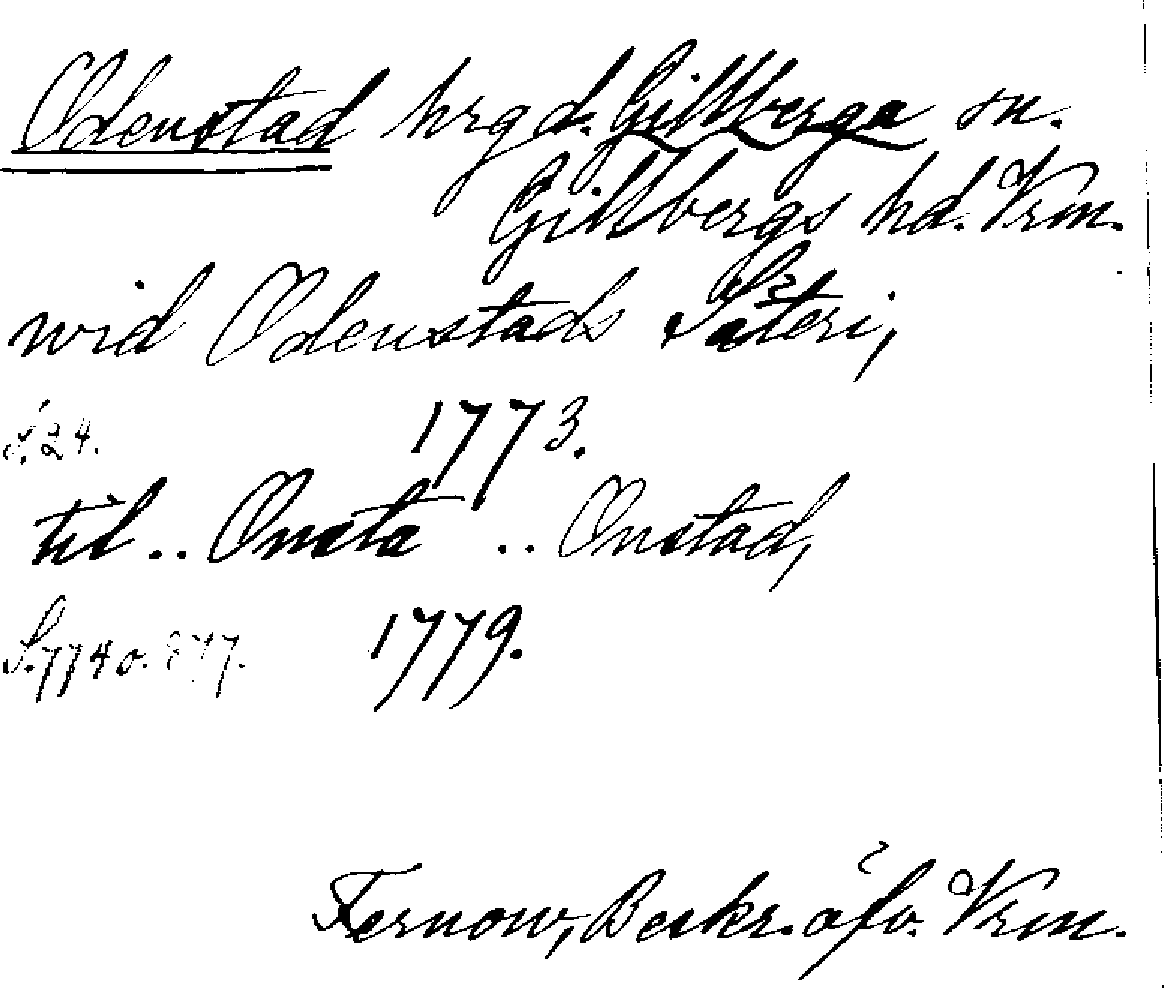 Odenstad hrgd. Gillberga sn.
Gillbergs hd. Vrm.
wid Odenstads Säteri,
S. 24. 1773.
til .. Onsta .. Onstad,
S. 774 o. 877. 1779.
Fernow, Beskr. öfv. Vrm.